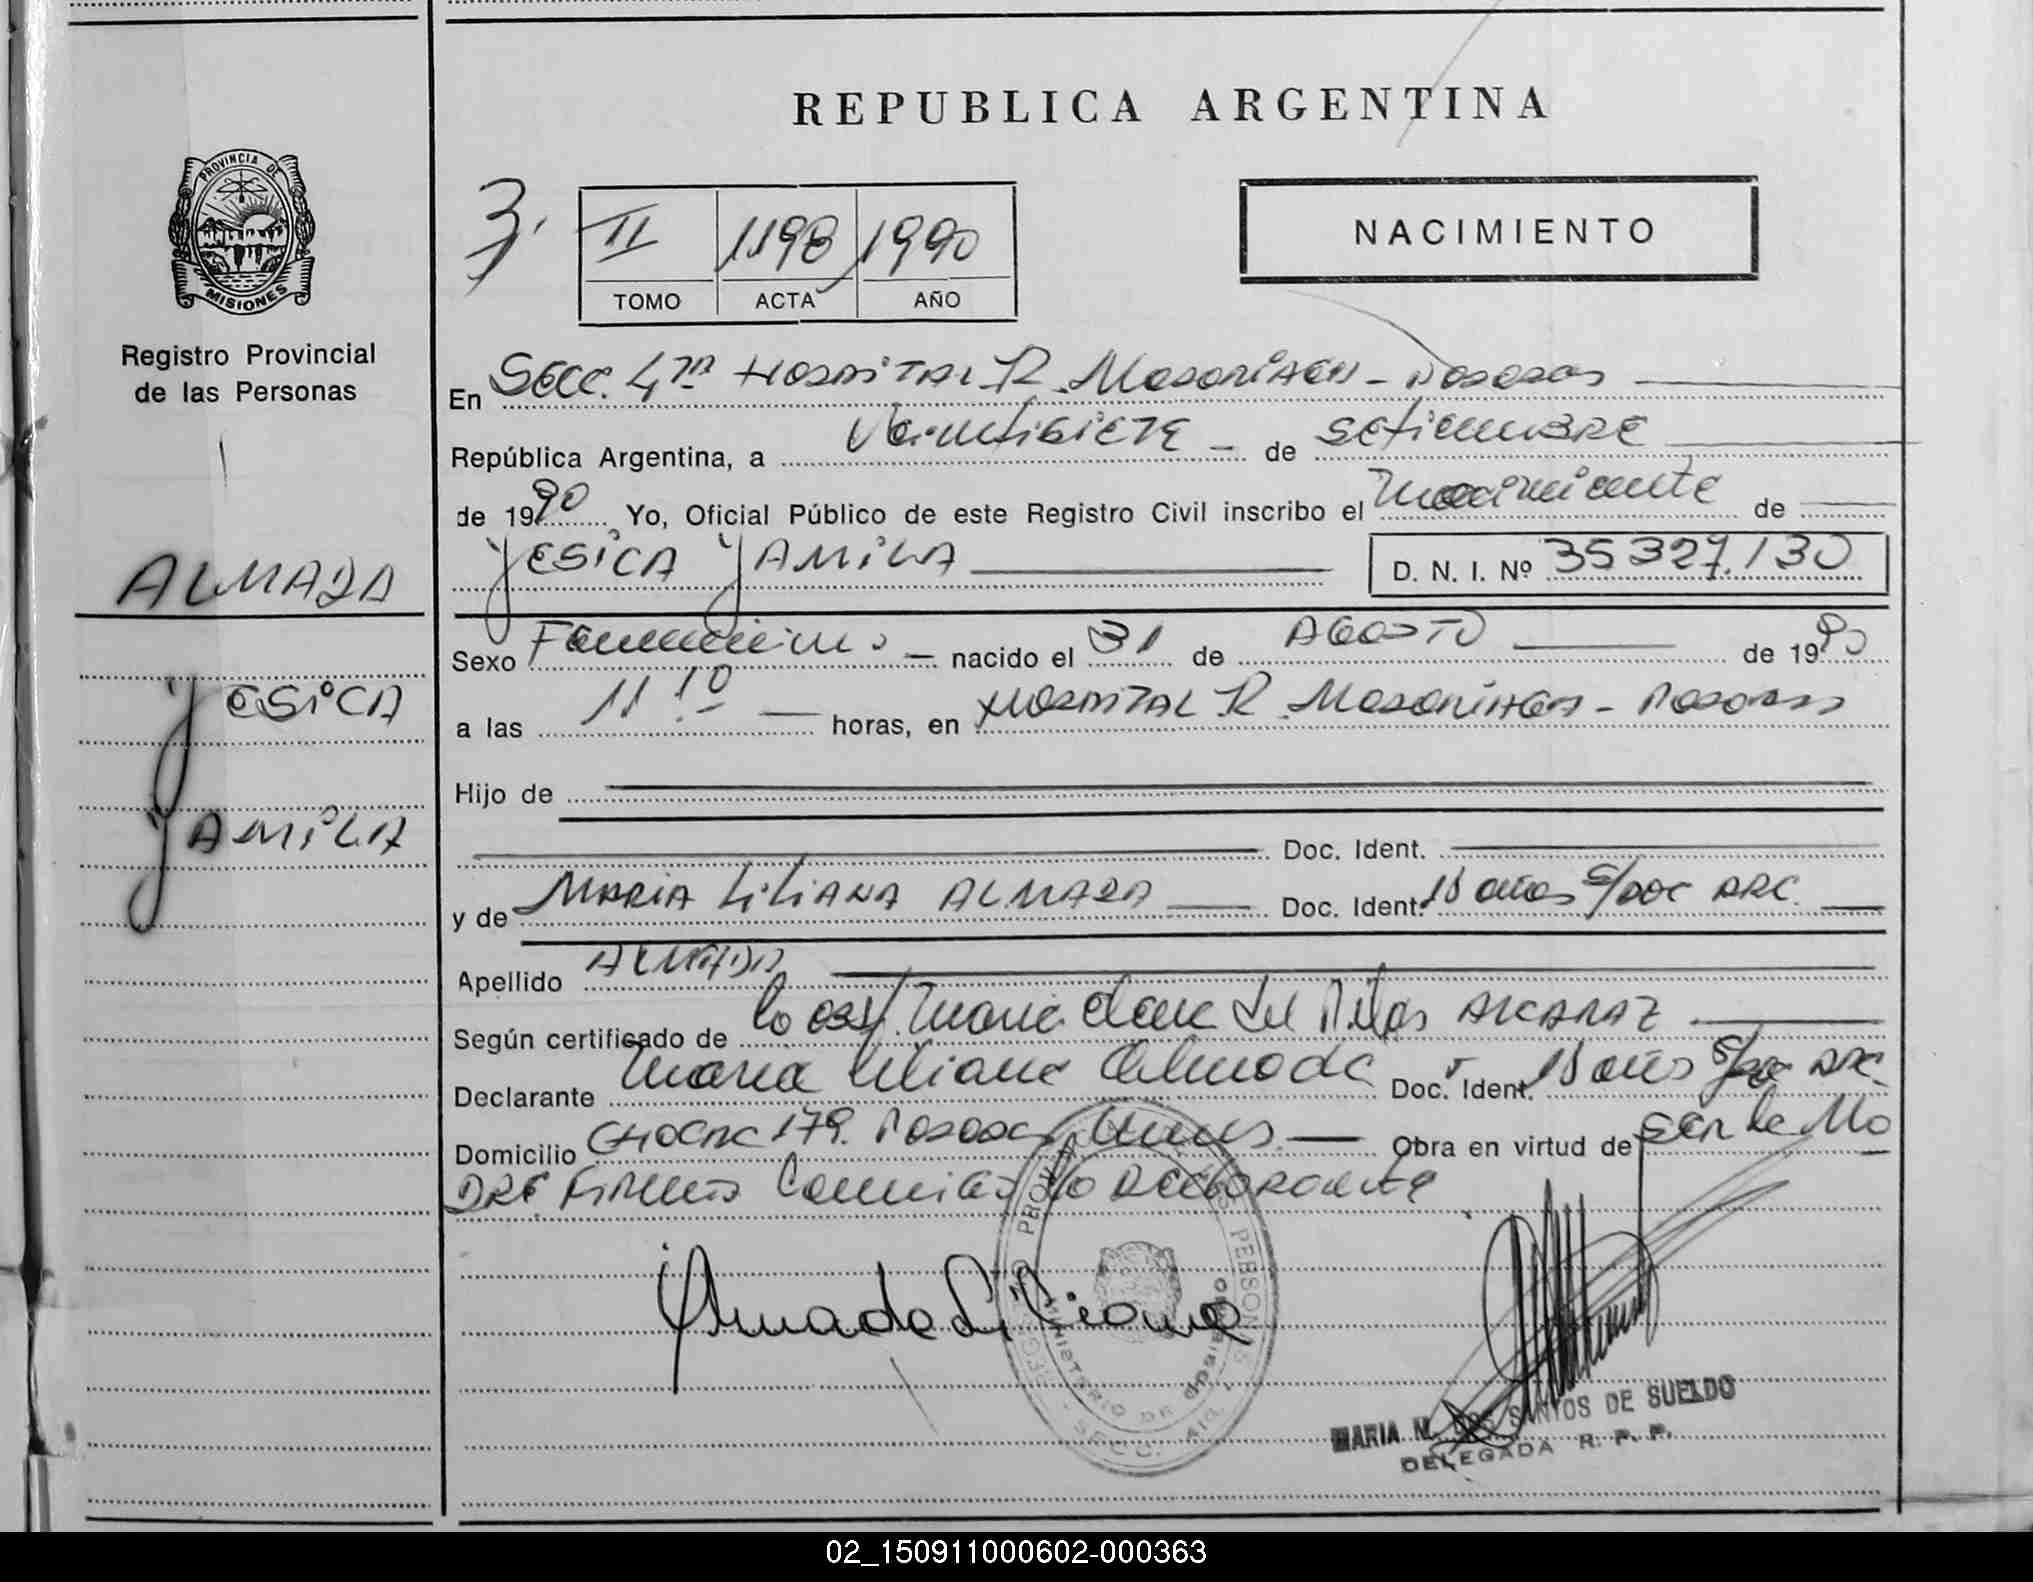 REPUBLICA ARGENTINA
PROVINCIA DE
MISIONES
Registro Provincial
de las Personas
3
II 1198 1990
TOMO ACTA AÑO
NACIMIENTO
En Secc. 4ta Hospital R. Madariaga - Posadas
República Argentina, a Veintisiete - de setiembre
de 1990 Yo, Oficial Público de este Registro Civil inscribo el nacimiento de
ALMADA
YESICA YAMILA
D. N. I. Nº 35327.130
Sexo Femenino - nacido el 31 de AGOSTO de 1990
YESICA
a las 11 10 horas, en Hospital R. Madariaga - Posadas
Hijo de
YAMILA
Doc. Ident.
y de MARIA LILIANA ALMADA Doc. Ident. 18 años s/Doc
Apellido ALMADA
Según certificado de la obst. del ALCARAZ
Declarante Maria Liliana Almada Doc. Ident. 18 años
Domicilio 179. Posadas Obra en virtud de
la declarante
Almada Liliana
MINISTERIO DE GOBIERNO
SECC. 4ta
MARIA M. DOS SANTOS DE SUELDO
DELEGADA R. P. P.
02_150911000602-000363